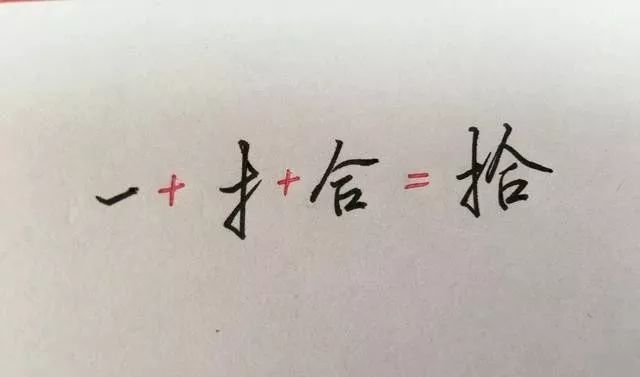 一+扌+合=拾